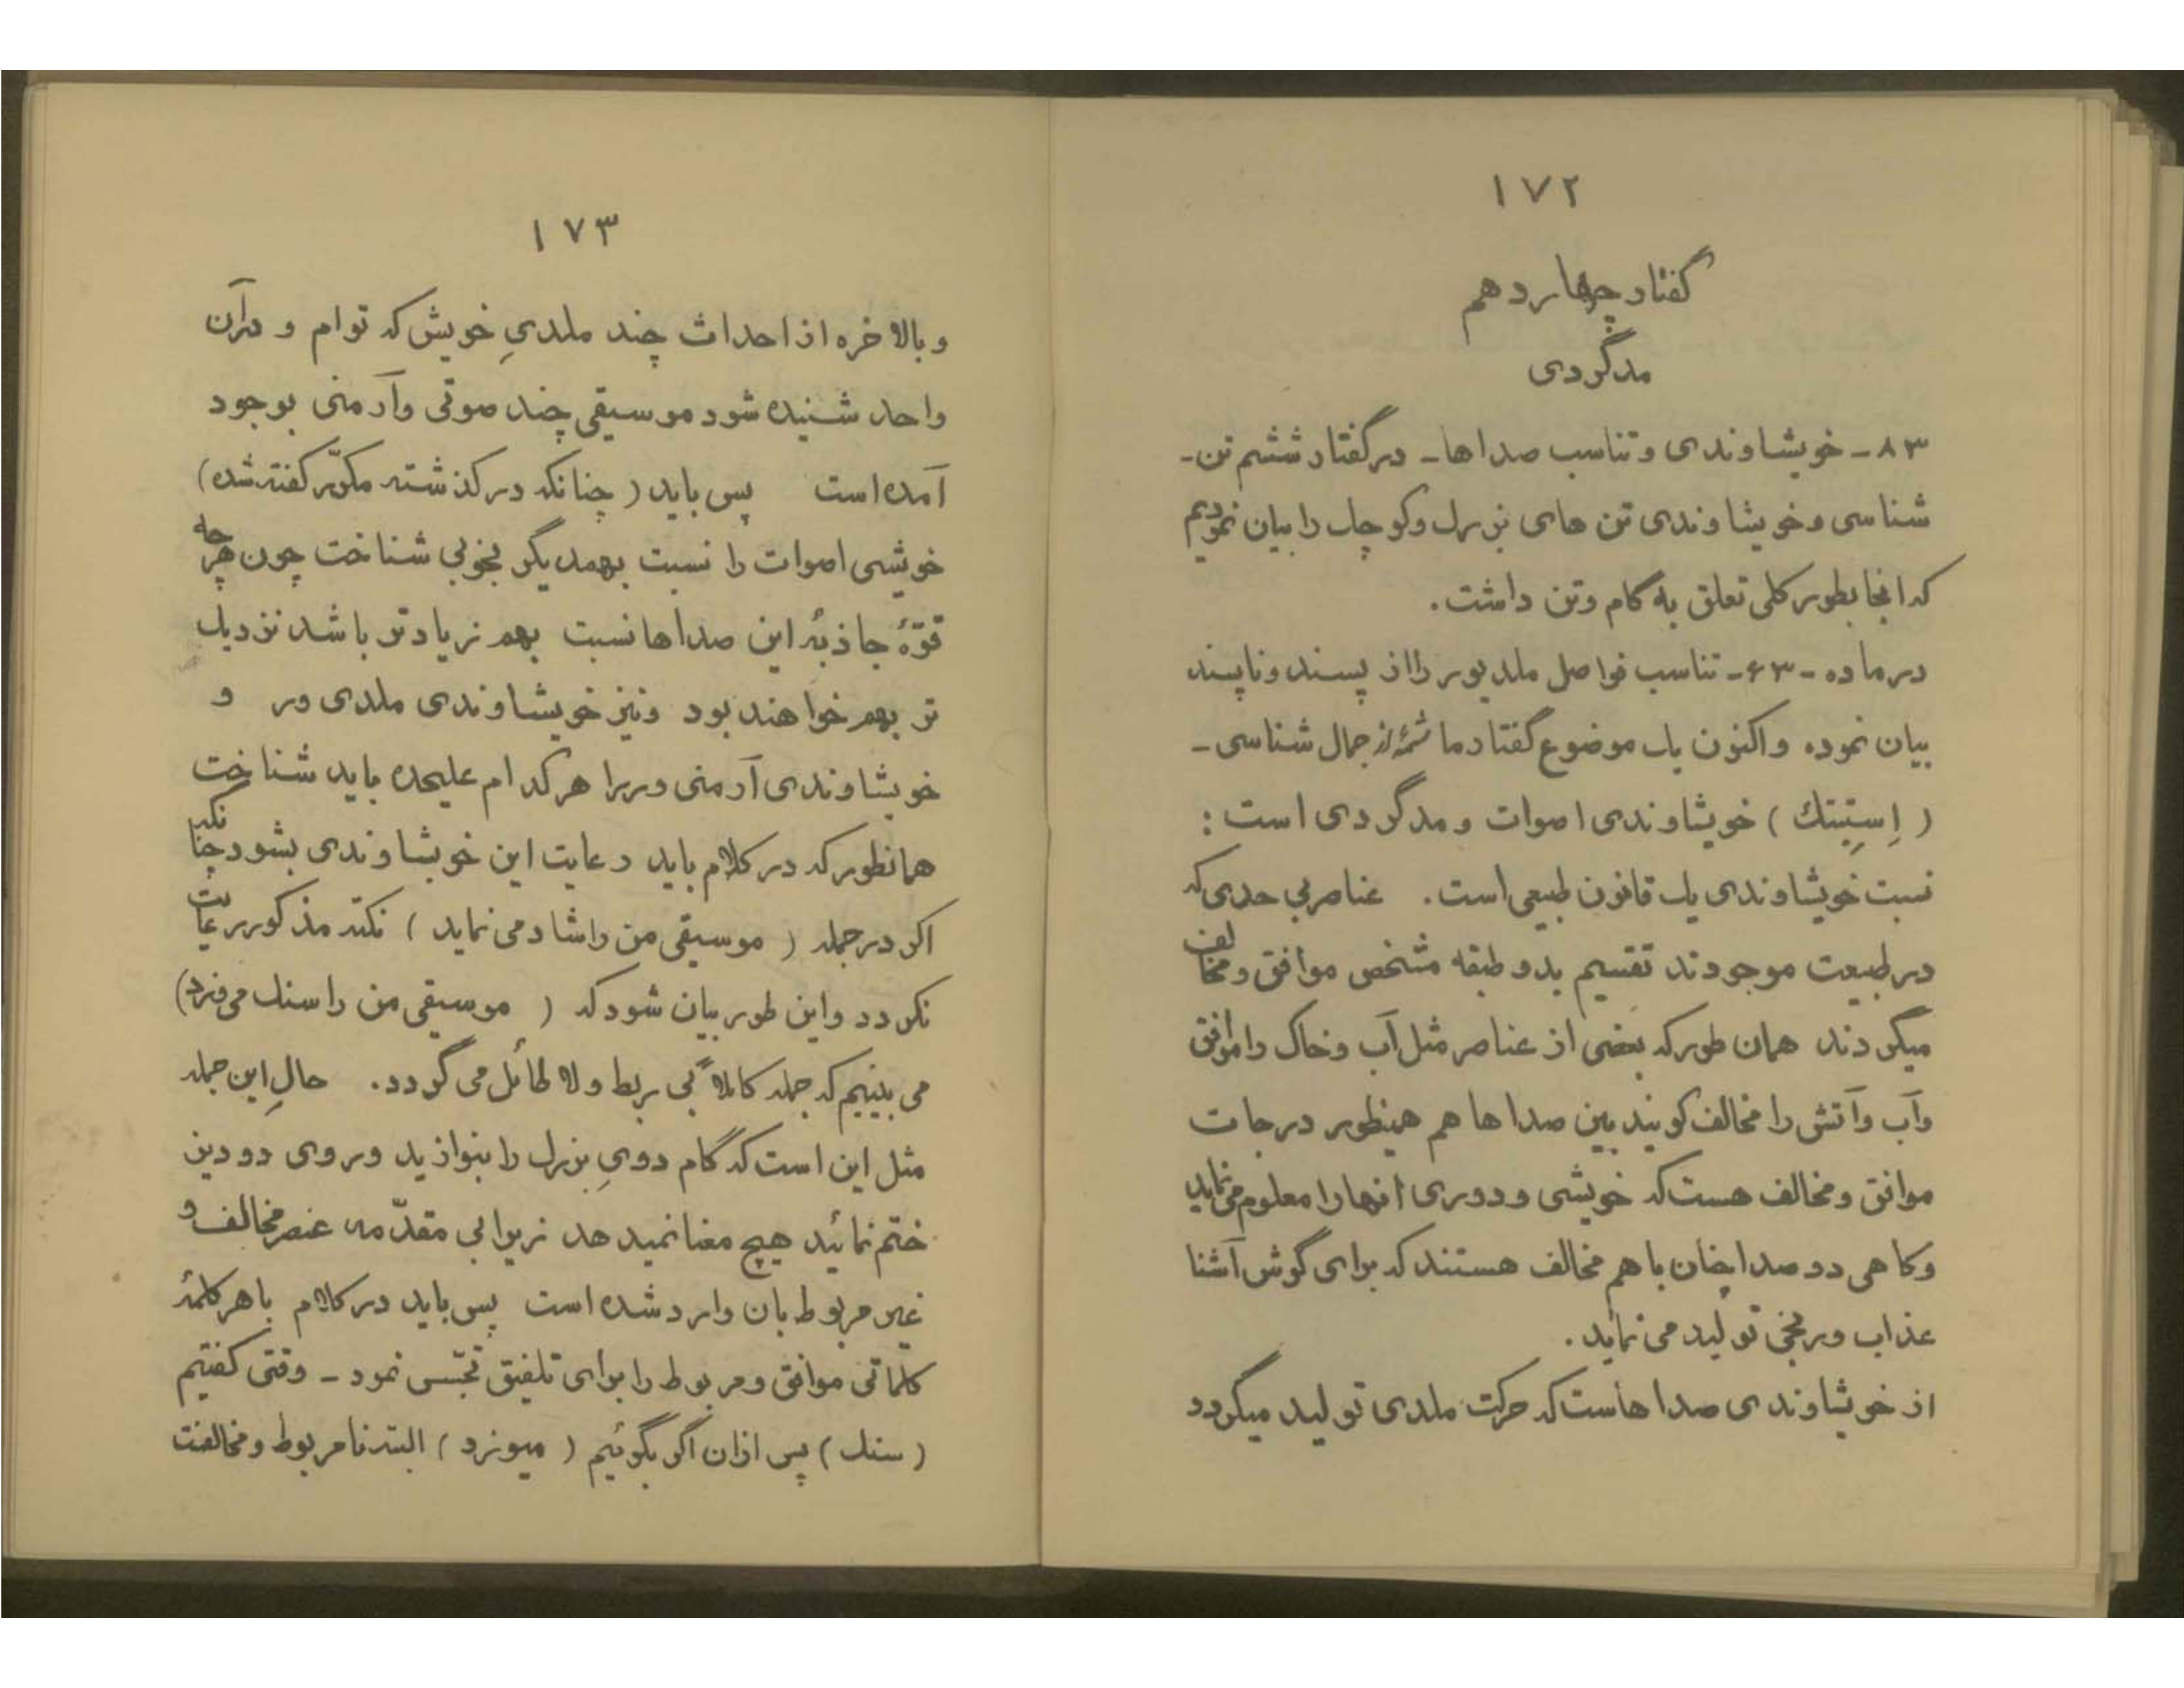 ۱۷۲
گفتار چهاردهم
مدگردی
۸۳ - خویشاوندی و تناسب صداها - در گفتار ششم تن -
شناسی و خویشاوندی تن های بزرك و کوچك را بیان نمودیم
که انجا بطور کلی تعلق به گام و تن داشت .
در ماده - ۶۳ - تناسب فواصل ملدیور را از پسند و ناپسند
بیان نموده و اکنون یك موضوع گفتار ما شمهٔ از جمال شناسی -
( اِستِتِتك ) خویشاوندی اصوات و مدگردی است :
نسبت خویشاوندی یك قانون طبیعی است . عناصر بی حدی که
در طبیعت موجودند تقسیم بدو طبقه مشخص موافق و مخالف
میگردند همان طور که بعضی از عناصر مثل آب و خاك را موافق
و آب و آتش را مخالف گویند بین صداها هم همینطور درجات
موافق و مخالف هست که خویشی و دوری انها را معلوم می نماید
و گاهی دو صدا چنان با هم مخالف هستند که برای گوش آشنا
عذاب و رنجی تولید می نماید .
از خویشاوندی صداهاست که حرکت ملدی تولید میگردد
۱۷۳
و بالاخره از احداث چند ملدیِ خویش که توام و در آن
واحد شنیده شود موسیقی چند صوتی و آرمنی بوجود
آمده است پس باید ( چنانکه در گذشته مکرّر گفته شده )
خویشی اصوات را نسبت بهمدیگر بخوبی شناخت چون هر چه
قوّهٔ جاذبهٔ این صداها نسبت بهم زیادتر باشد نزدیك
تر بهم خواهند بود و نیز خویشاوندی ملدی ور و
خویشاوندی آرمنی ور را هر کدام علیحده باید شناخت
همانطور که در کلام باید رعایت این خویشاوندی بشود چنانکه
اگر در جمله ( موسیقی من را شاد می نماید ) نکته مذکور رعایت
نگردد و این طور بیان شود که ( موسیقی من را سنك می وزد )
می بینیم که جمله کاملاً بی ربط و لا طائل می گردد . حالِ این جمله
مثل این است که گام دویِ بزرك را بنوازید و روی دو دیز
ختم نمائید هیچ معنا نمیدهد زیرا بی مقدّمه عنصر مخالف و
غیر مربوط بان وارد شده است پس باید در کلام با هر کلمهٔ
کلماتی موافق و مربوط را برای تلفیق تجسّس نمود - وقتی گفتیم
( سنك ) پس از ان اگر بگوئیم ( میوزد ) البته نامربوط و مخالفت